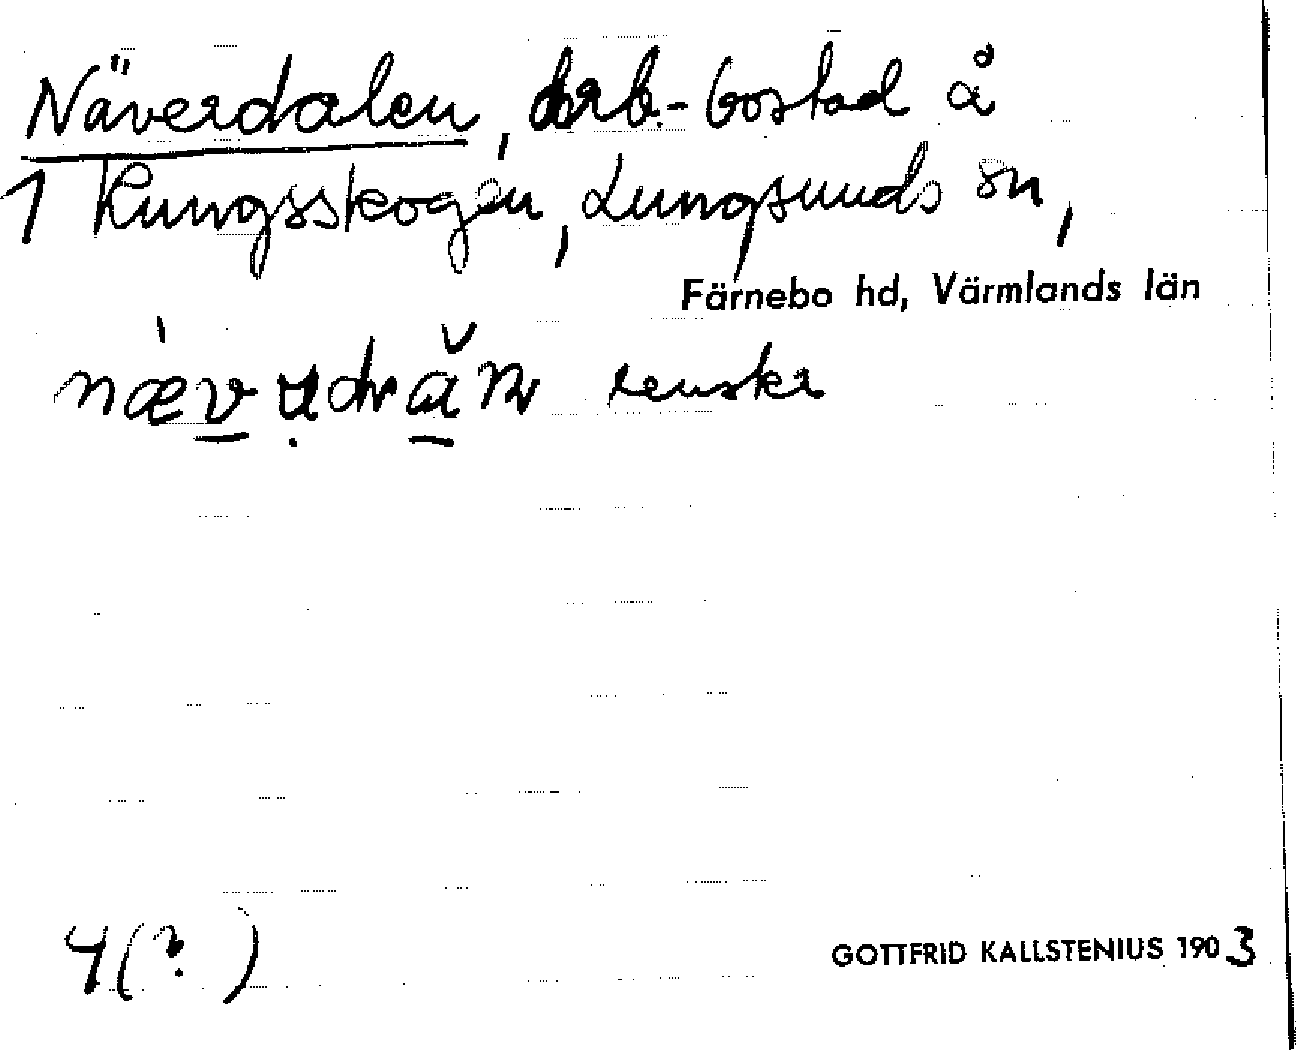 Näverdalen, arb.-bostad å
1 Kungsskogen, Lungsunds sn,
Färnebo hd, Värmlands län
4(?)
GOTTFRID KALLSTENIUS 1903